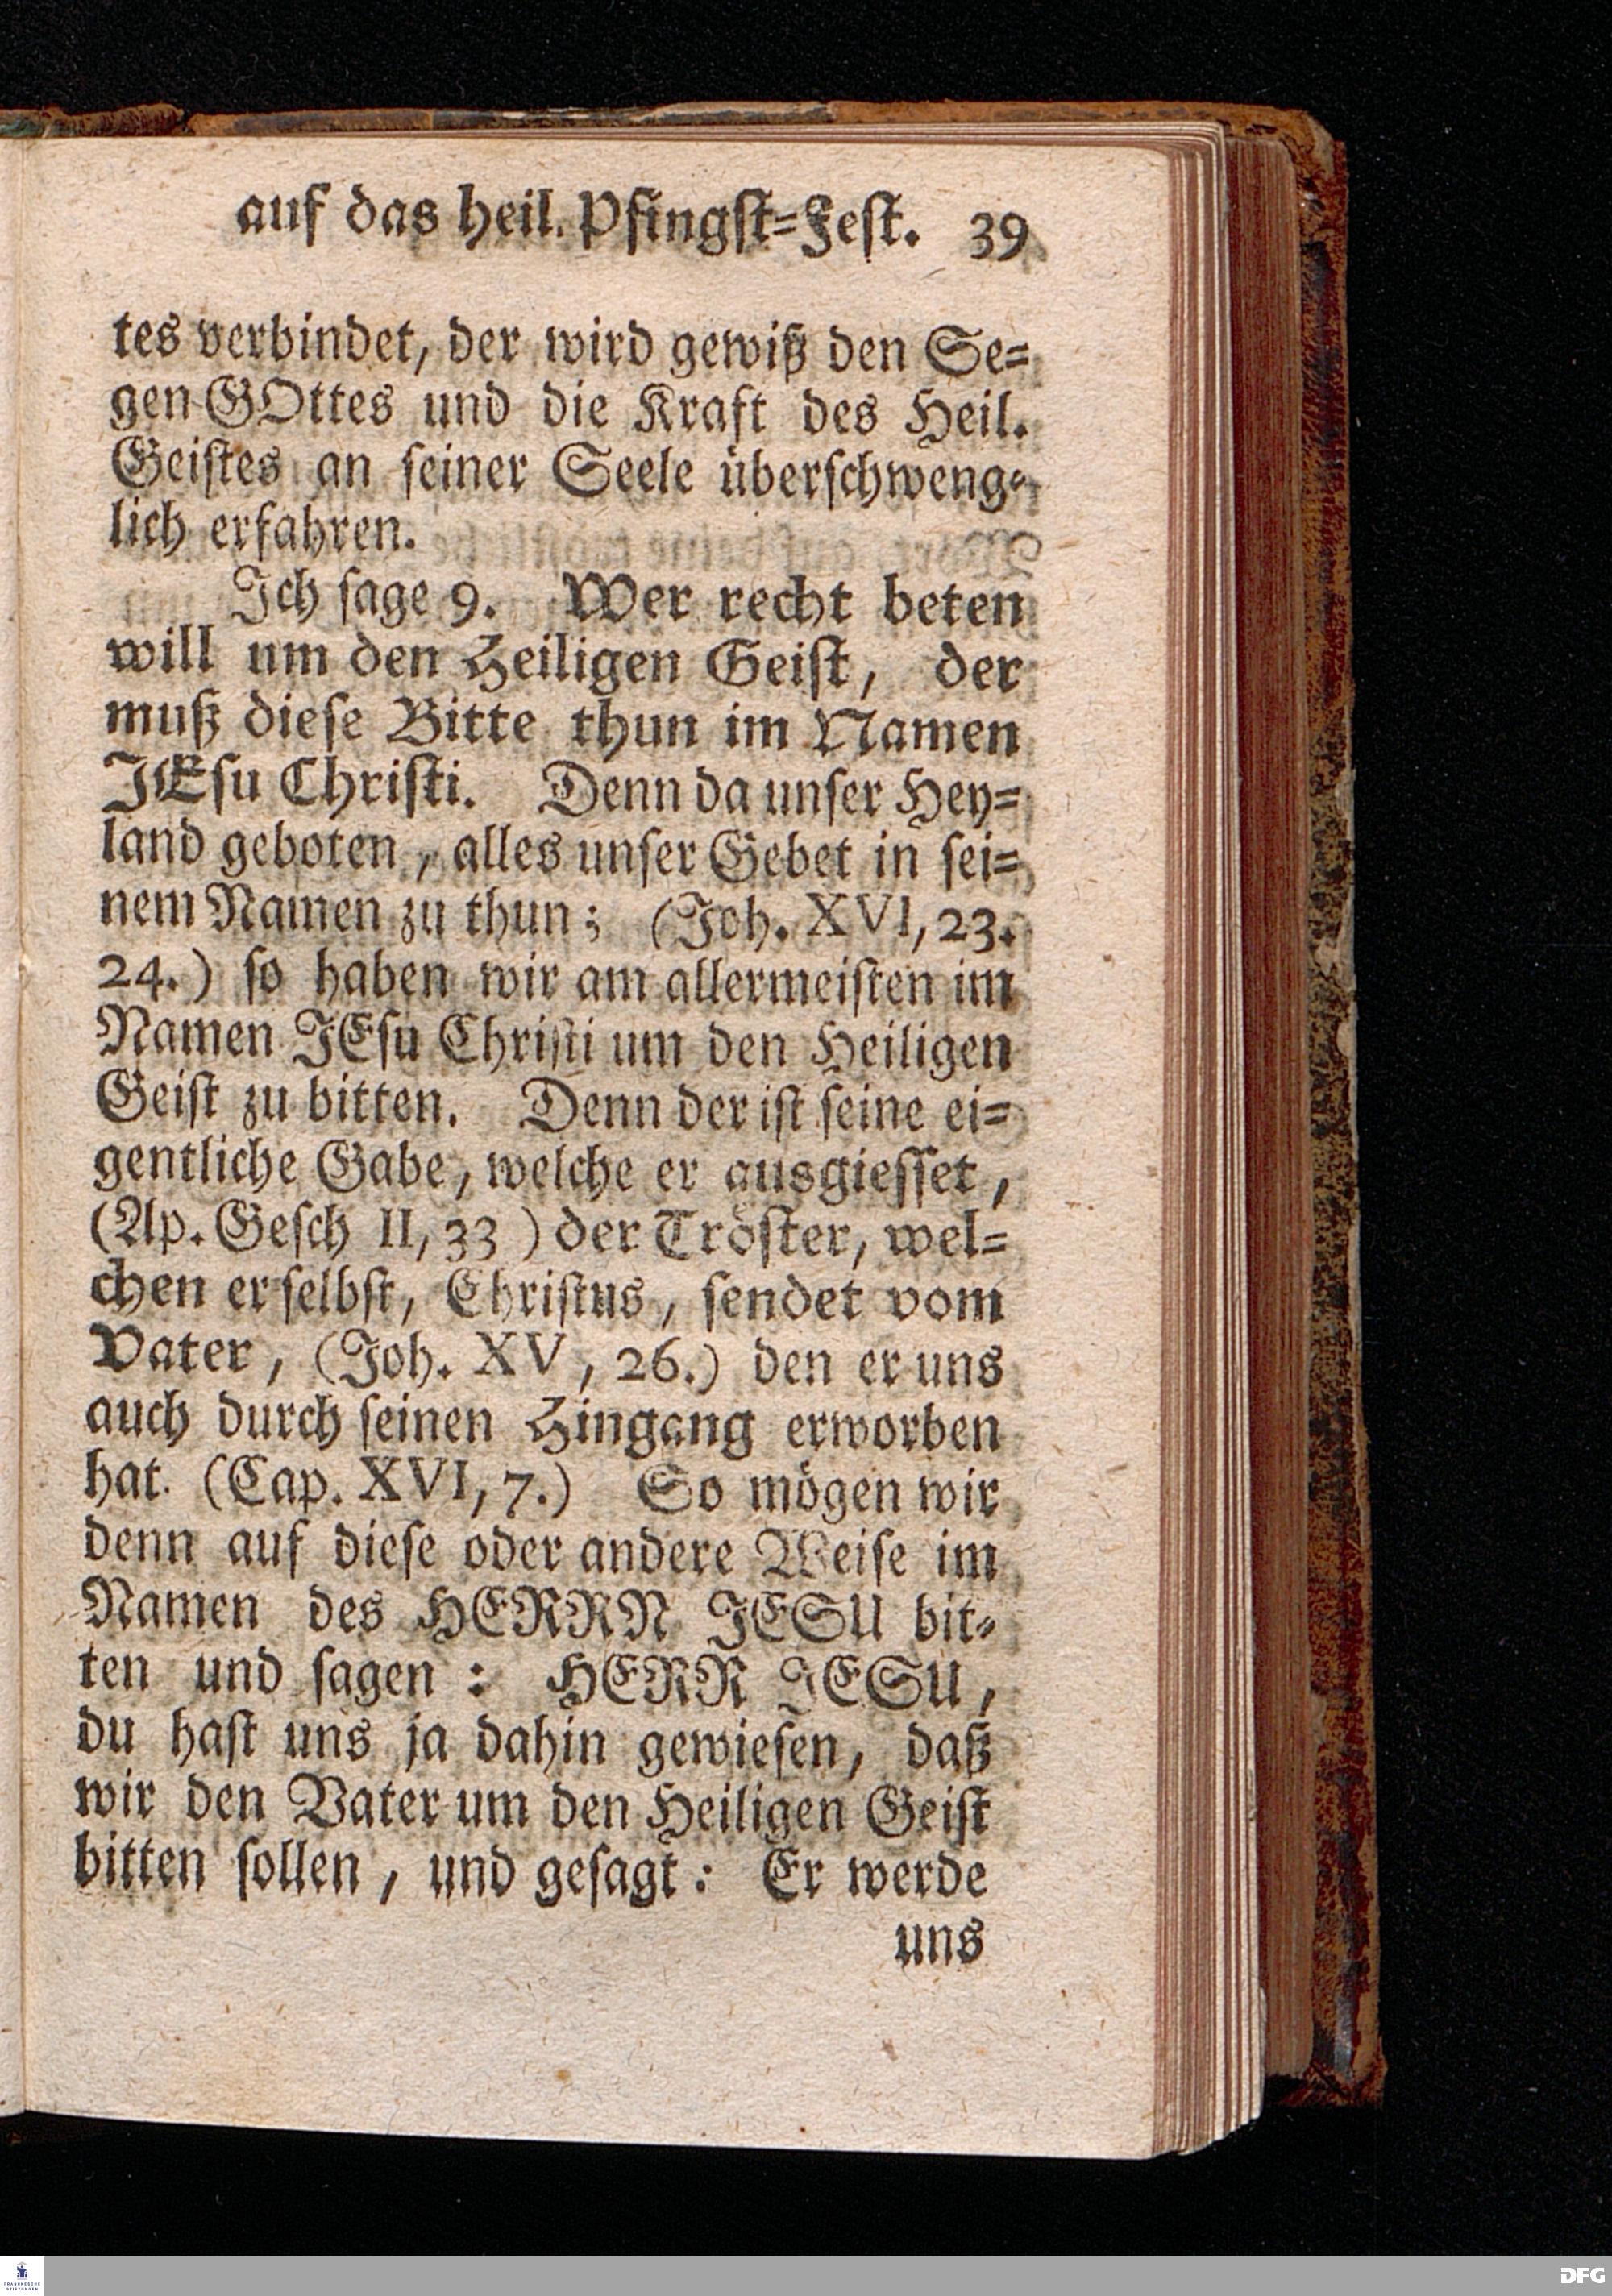 auf das heil. Pfingst-Fest. 39
tes verbindet, der wird gewiß den Se-
gen GOttes und die Kraft des Heil.
Geistes an seiner Seele überschweng-
lich erfahren.
Ich sage 9. Wer recht beten
will um den Heiligen Geist, der
muß diese Bitte thun im Namen
JEsu Christi. Denn da unser Hey-
land geboten, alles unser Gebet in sei-
nem Namen zu thun; (Joh. XVI, 23.
24.) so haben wir am allermeisten im
Namen JEsu Christi um den Heiligen
Geist zu bitten. Denn der ist seine ei-
gentliche Gabe, welche er ausgiesset,
(Ap. Gesch II, 33 ) der Tröster, wel-
chen er selbst, Christus, sendet vom
Vater, (Joh. XV, 26.) den er uns
auch durch seinen Hingang erworben
hat. (Cap. XVI, 7.) So mögen wir
denn auf diese oder andere Weise im
Namen des HERRN JESU bit-
ten und sagen : HERR JESU,
du hast uns ja dahin gewiesen, daß
wir den Vater um den Heiligen Geist
bitten sollen, und gesagt: Er werde
uns
FRANCKESCHE
STIFTUNGEN
DFG